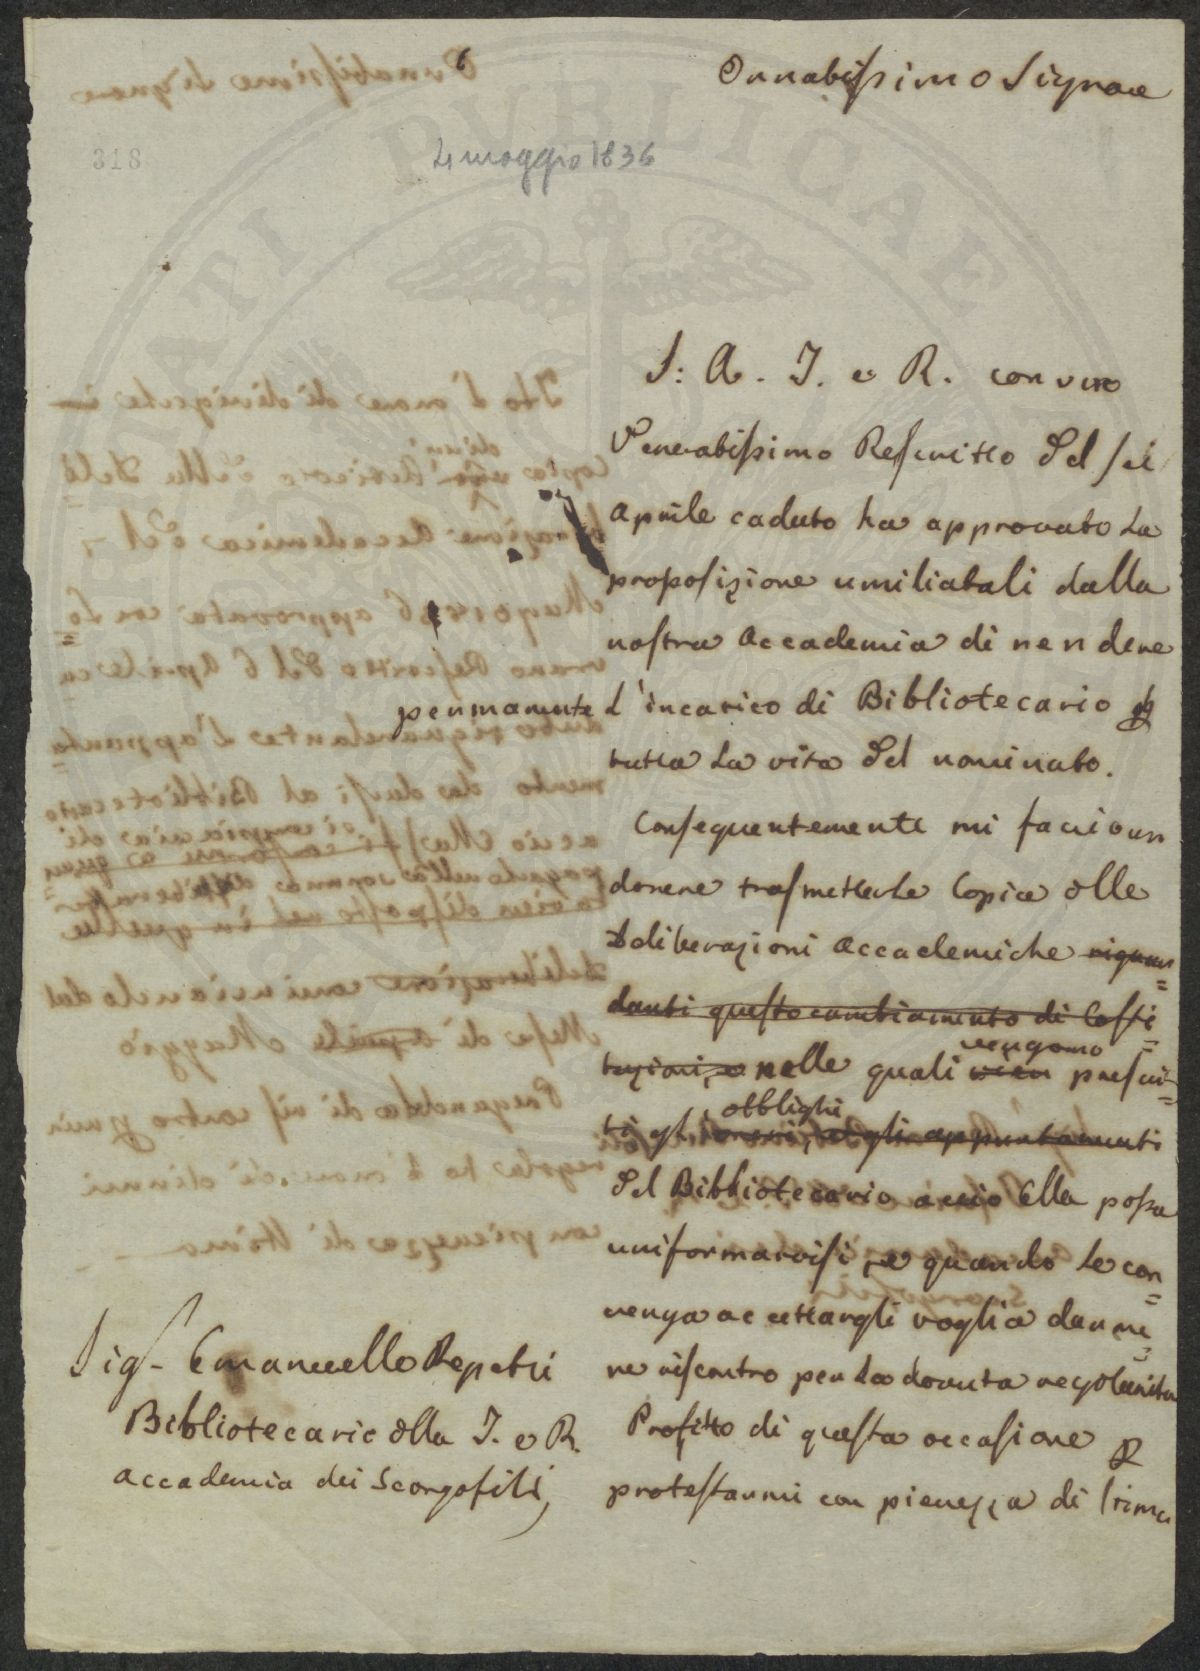 Onorabilissimo Signore
318
4 maggio 1836
S: A. I. e R. con suo
Venerabilissimo Rescritto del sei
Aprile caduto ha approvato la
proposizione umiliatali dalla
nostra Accademia di rendere
permanente l'incarico di Bibliotecario p
tutta la vita del nominato.
Conseguentemente mi faccio un
dovere trasmetterle Copia delle
Deliberazioni Accademiche riguar=
danti questo cambiamento di Costi=
tuzioni, e nelle quali vien vengono prescri=
ti gl'oneri, obblighi e gli appuntamenti
del Bibliotecario accio Ella possa
uniformarvisi, e quando le con=
venga accettargli voglia darme=
ne riscontro per la dovuta regolarità
Profitto di questa occasione p
protestarmi con pienezza di stima
Sig.r Emanuello Repetti
Bibliotecario della I. e R.
Accademia dei Georgofili